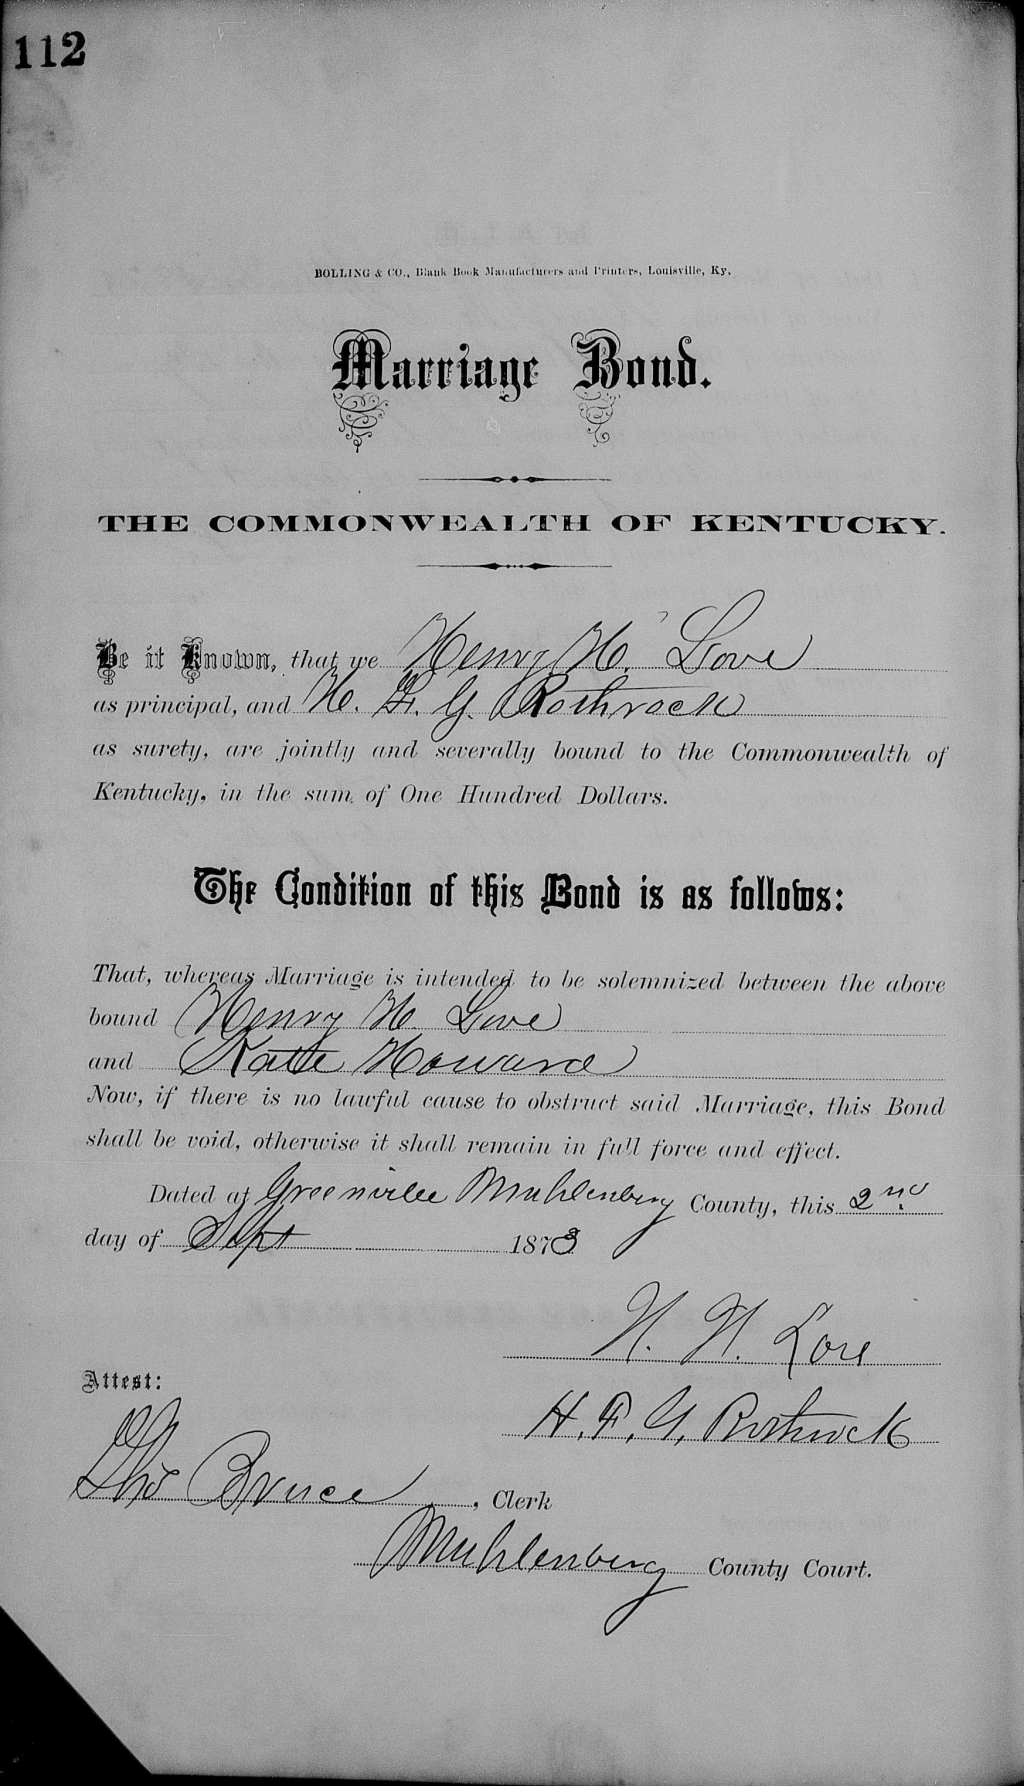 112
BOLLING & CO., Blank Book Manufacturers and Printers, Louisville, Ky.
Marriage Bond.
THE COMMONWEALTH OF KENTUCKY.
Be it Known, that we Henry H. Love
as principal, and H. F. Y. Rothrock
as surety, are jointly and severally bound to the Commonwealth of
Kentucky, in the sum of One Hundred Dollars.
The Condition of this Bond is as follows:
That, whereas Marriage is intended to be solemnized between the above
bound Henry H. Love
and Kate Howard
Now, if there is no lawful cause to obstruct said Marriage, this Bond
shall be void, otherwise it shall remain in full force and effect.
Dated at Greenville Muhlenberg County, this 2nd
day of Sept 1873
H. H. Love
H. F. Y. Rothrock
Attest:
Bruce, Clerk
Muhlenberg County Court.